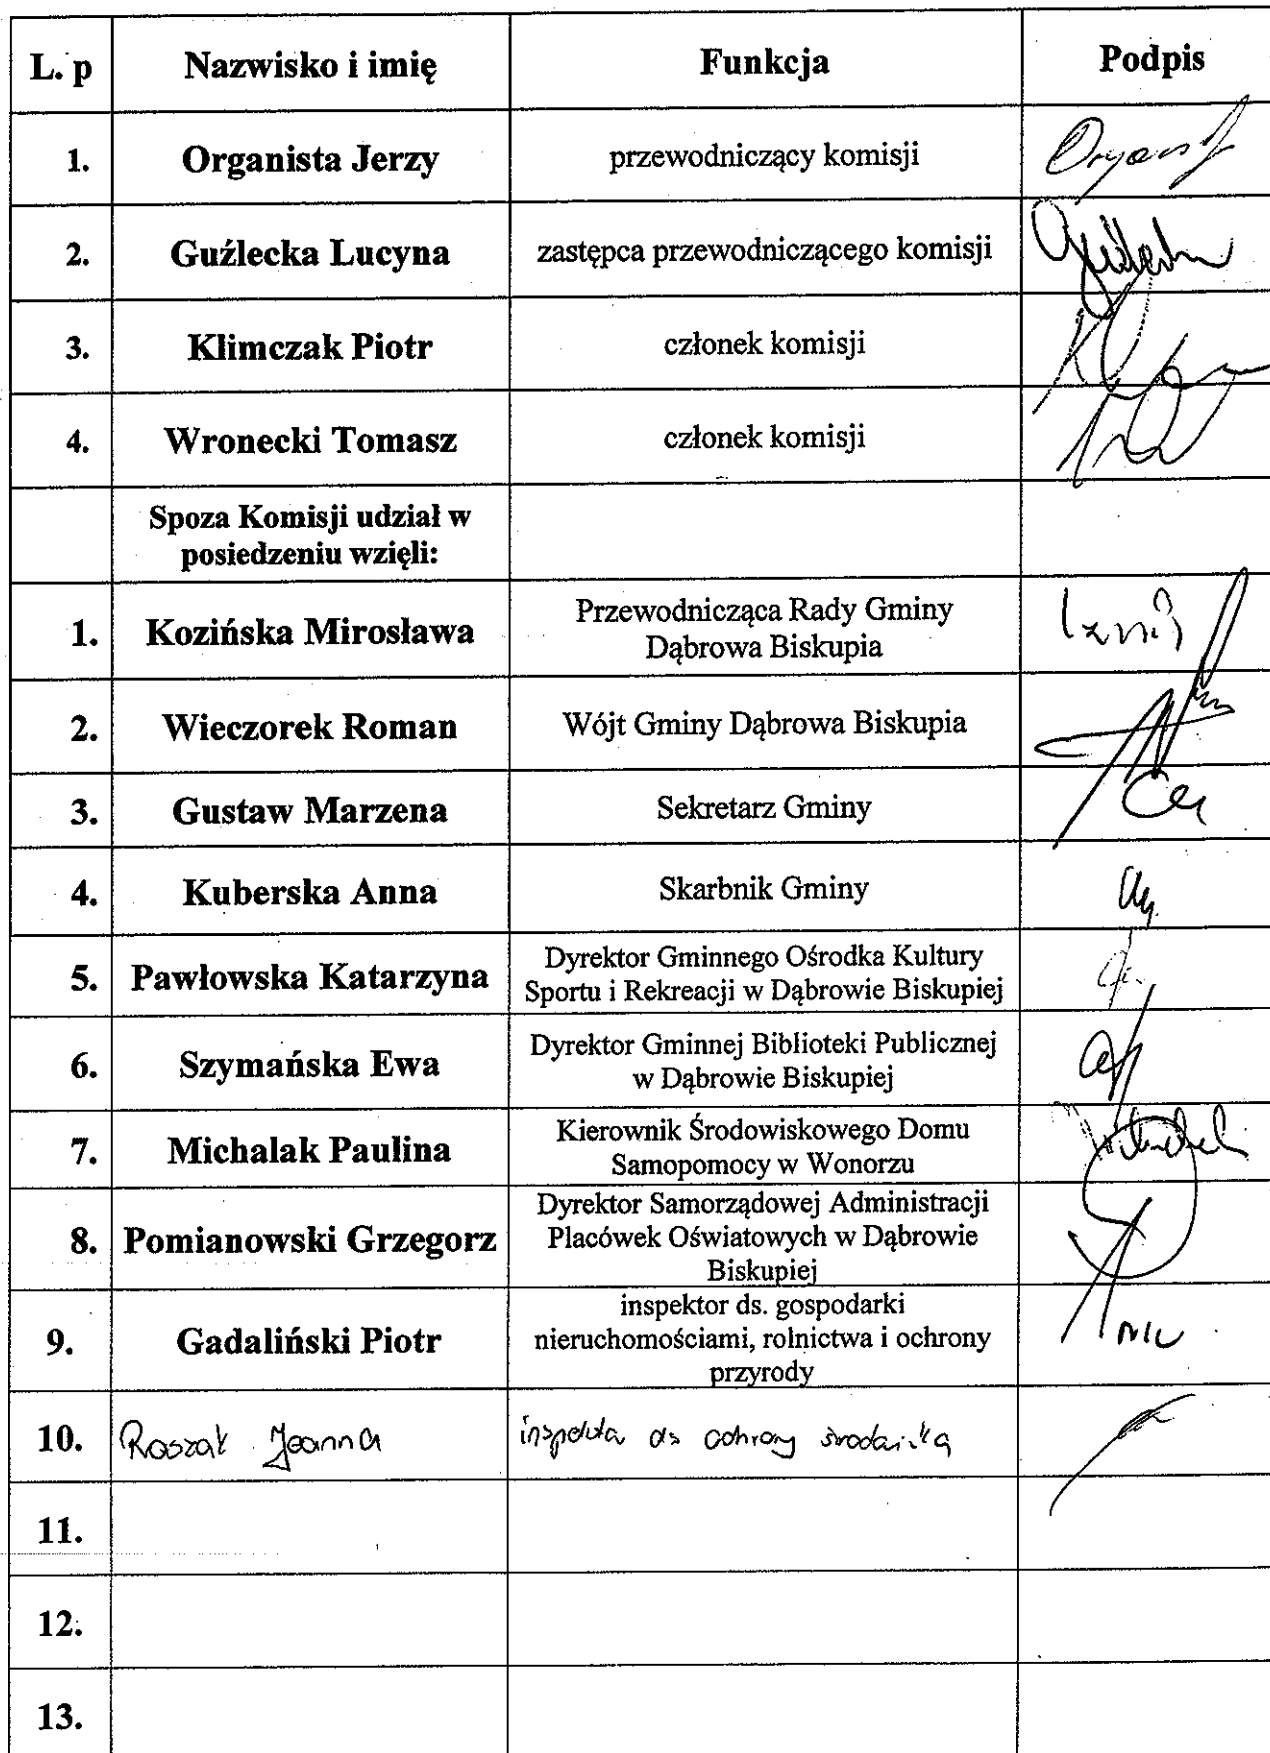 L. p Nazwisko i imię Funkcja Podpis
1. Organista Jerzy przewodniczący komisji
2. Guźlecka Lucyna zastępca przewodniczącego komisji
3. Klimczak Piotr członek komisji
4. Wronecki Tomasz członek komisji
Spoza Komisji udział w
posiedzeniu wzięli:
1. Kozińska Mirosława Przewodnicząca Rady Gminy
Dąbrowa Biskupia
2. Wieczorek Roman Wójt Gminy Dąbrowa Biskupia
3. Gustaw Marzena Sekretarz Gminy
4. Kuberska Anna Skarbnik Gminy
5. Pawłowska Katarzyna Dyrektor Gminnego Ośrodka Kultury
Sportu i Rekreacji w Dąbrowie Biskupiej
6. Szymańska Ewa Dyrektor Gminnej Biblioteki Publicznej
w Dąbrowie Biskupiej
7. Michalak Paulina Kierownik Środowiskowego Domu
Samopomocy w Wonorzu
8. Pomianowski Grzegorz Dyrektor Samorządowej Administracji
Placówek Oświatowych w Dąbrowie
Biskupiej
9. Gadaliński Piotr inspektor ds. gospodarki
nieruchomościami, rolnictwa i ochrony
przyrody
10. Roszak Joanna ds ochrony środowiska
11.
12.
13.